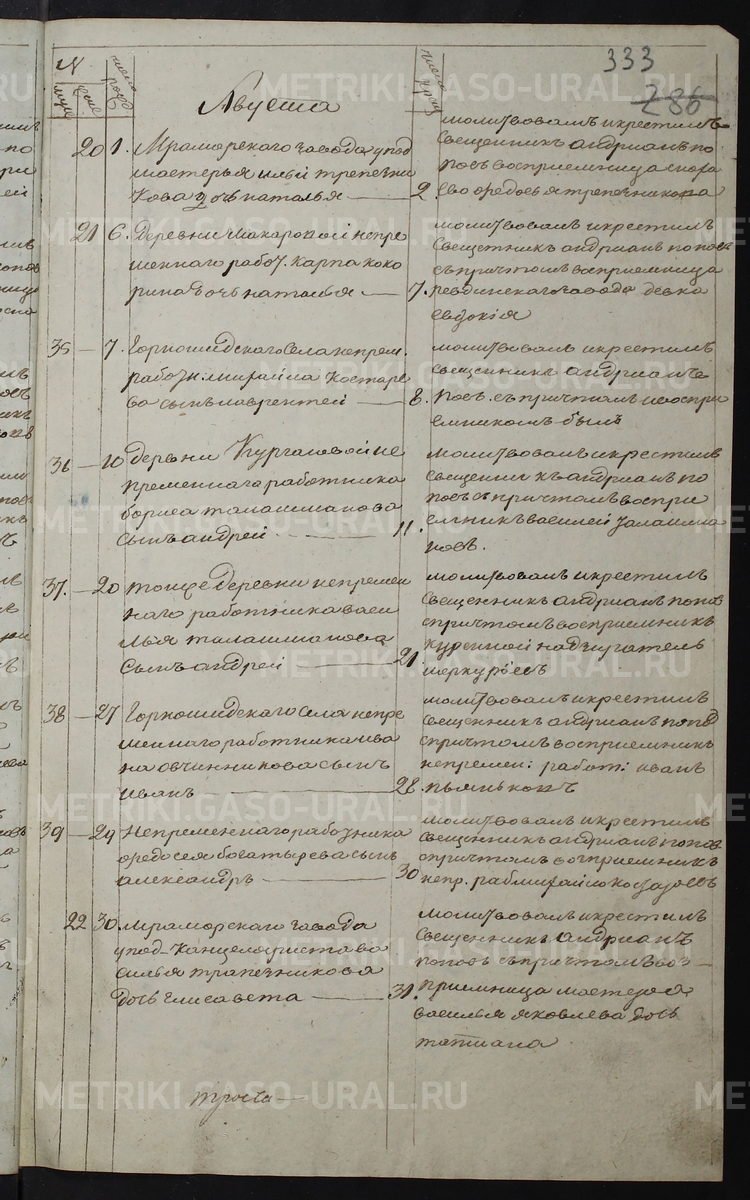 333
286
N
муж.
жен.
число рожд
Августа
число крещ
20 1. Мраморскаго завода у под
мастерья ильи трапезни
кова дочь наталья — 2.
молитвовалъ и крестилъ
Священникъ андрианъ по
повъ восприемница
федосья трапезникова
21 6. Деревни Макаровой непре
меннаго работ. карпа коко
рина дочь наталья — 7.
молитвовалъ и крестилъ
Священникъ андрианъ поповъ
съ притчомъ восприемница
ревдинскаго завода девка
евдокія
35 — 7. Горношидскаго села непрем.
работн. михайла костаре
ва сынъ лаврентей — 8.
молитвовалъ и крестилъ
священникъ андрианъ
повъ. съ причтомъ воспри
емникомъ былъ
36 — 10 деревни Кургановой не
пременнаго работника
бориса талашманова
сынъ андрей — 11.
молитвовалъ и крестилъ
священникъ андрианъ по
повъ съ притчомъ воспри
емникъ василей
новъ.
37. — 20 тойже деревни непремен
наго работника васи
лья талашманова
сынъ андрей — 21
молитвовалъ и крестилъ
Священникъ андрианъ попов
с причтомъ восприемникъ
куренной надзиратель
меркурьевъ
38 — 27 Горношидскаго села непре
меннаго работника ива
на овчинникова сынъ
иванъ — 28.
молитвовалъ и крестилъ
Священникъ андрианъ попов
спричтомъ восприемникъ
непремен: работ: иванъ
пьянковъ
39 — 29 Непременнаго работника
федосея богатырева сынъ
александръ — 30
молитвовалъ и крестилъ
священникъ андрианъ попов
спричтомъ восприемникъ
непр. раб михайло
22 30. Мраморскаго завода
у под-канцеляриста ва
силья трапезникова
дочь Елисавета — 31.
молитвовалъ и крестилъ
Священникъ андрианъ
поповъ съ притчомъ вос—
приемница мастера
василья яковлева дочь
татиана
METRIKI.GASO-URAL.RU